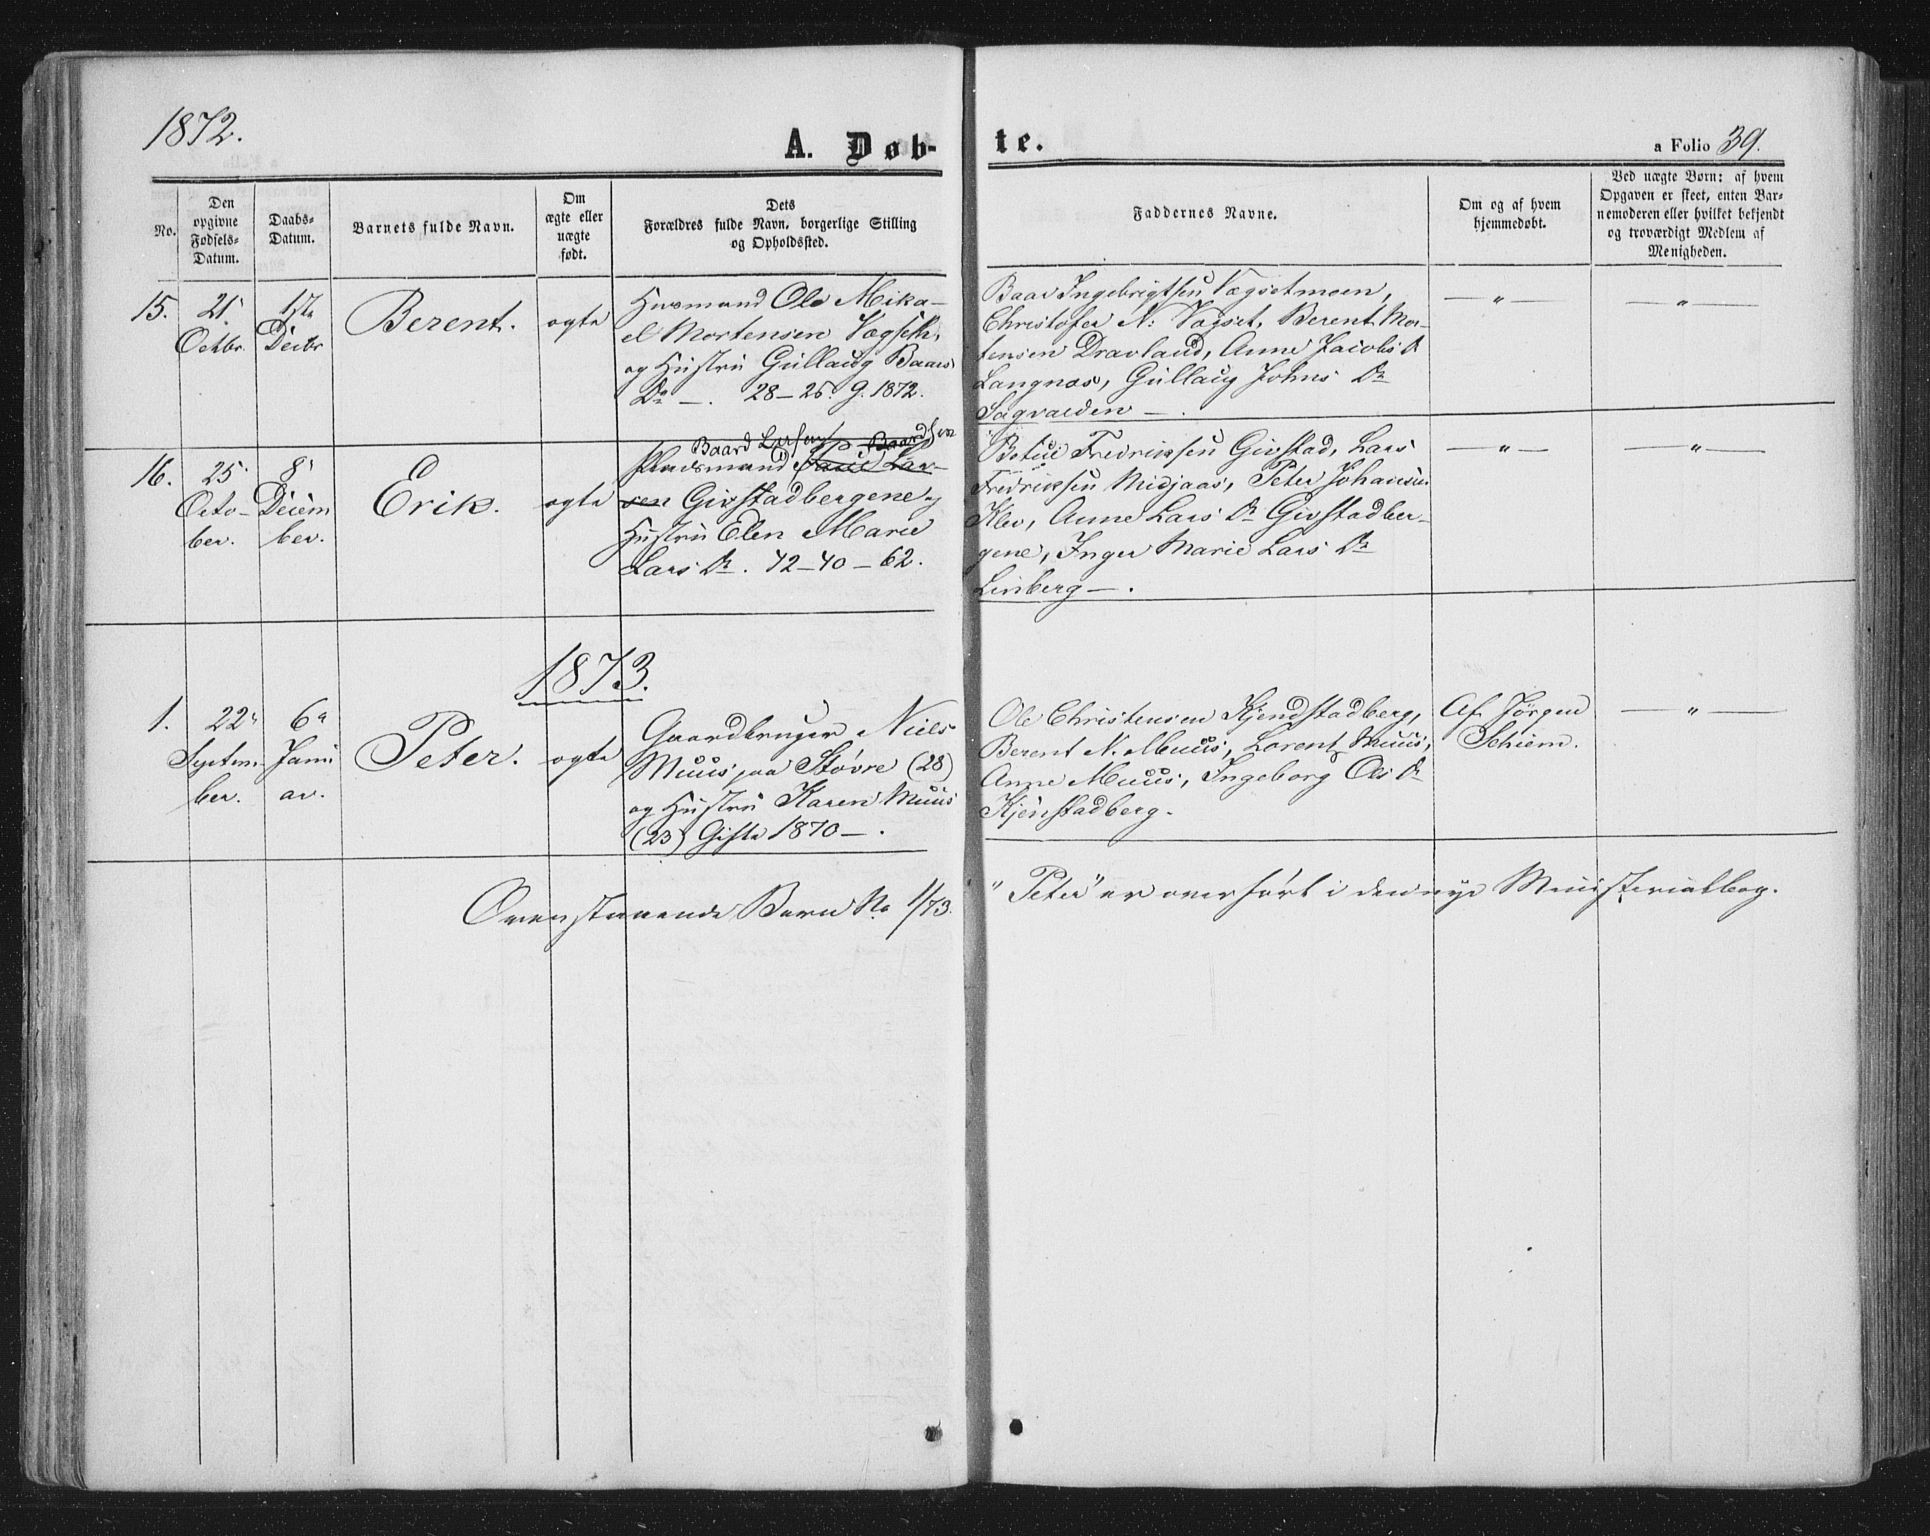 1872.
A. Døb-
te.
a Folio 39.
No.
Den
opgivne
Fødsels-
Datum.
Daabs-
Datum.
Barnets fulde Navn.
Om
ægte eller
uægte
født.
Dets
Forældres fulde Navn, borgerlige Stilling
og Opholdssted.
Faddernes Navne.
Om og af hvem
hjemmedøbt.
Ved uægte Børn: af hvem
Opgaven er skeet, enten Bar-
nemoderen eller hvilket bekjendt
og troværdigt Medlem af
Menigheden.
15.
21'
Octbr.
1ste
Decbr
Berent.
ægte
Husmand Ole Mika-
el Mortensen Vægseth,
og Hustru Gullaug Baars
Dr — . 28 – 25. g. 1872.
Baar Ingebrigtsen Vægsetmoen,
Christofer N: Vægset, Berent Mor-
tensen Dravland, Anne Jacobs Dr
Langnæs, Gullaug Johns Dr
Sagvolden — .
— „ —
— „ —
16.
25'
Octo-
ber.
8'
Decem
ber.
Erik.
ægte
Baard Larsen Baardsen
Pladsmand Lar-
sen Givstadbergene og
Hustru Elen Marie
Lars Dr. 42 – 40 – 62.
Fredriksen Givstad, Lars
Fredriksen Midjaas, Peter Johansen
Klev, Anne Lars Dr Givstadber-
gene, Inger Marie Lars Dr
Linberg — .
— „ —
— „ —
1873.
1.
22'
Septem-
ber.
6'
Janu
ar.
Peter.
ægte
Gaardbruger Niels
Muus paa Støvre (28)
og Hustru Karen Muus
(23) Gifte 1870 — .
Ole Christensen Kjendstadberg,
Berent N. Muus, Lorentz Muus,
Anne Muus, Ingeborg Ols Dr
Kjenstadberg.
Af Jørgen
Schiem.
— „ —
Ovenstaaende Barn No 1/73.
"Peter" er overført i den nye Ministerialbog.